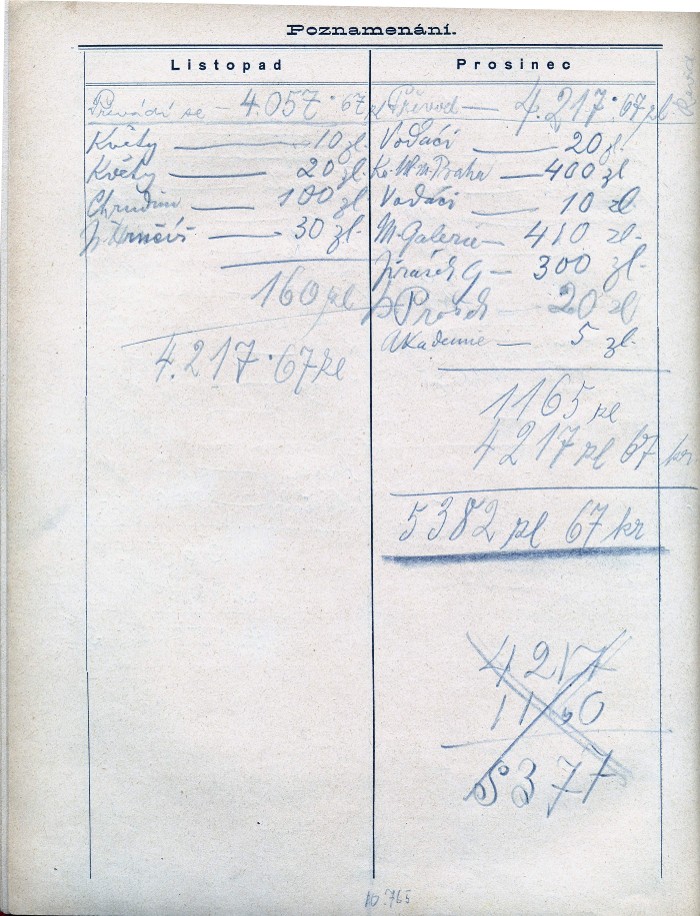 Poznamenání.
Listopad
Převádí se — 4.057·67 zl
Květy — 10 zl.
Květy — 20 zl.
Chrudim — 100 zl.
30 zl.
160 zl
4.217·67 zl
Prosinec
Převod — 4.217·67 zl
Vodáci — 20 zl.
Praha — 400 zl
Vodáci — 10 zl
M. Galerie — 410 zl.
G — 300 zl.
20 zl
Akademie — 5 zl.
1165 zl
4217 zl 67 kr
5382 zl 67 kr
4217
1160
5377
10.765